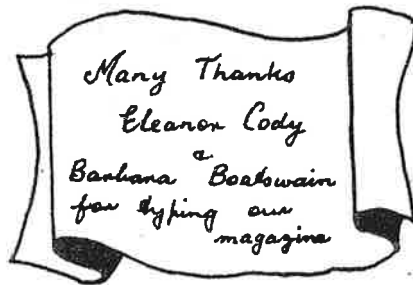 Many Thanks
Eleanor Cody
&
Barbara Boatswain
for typing our
magazine